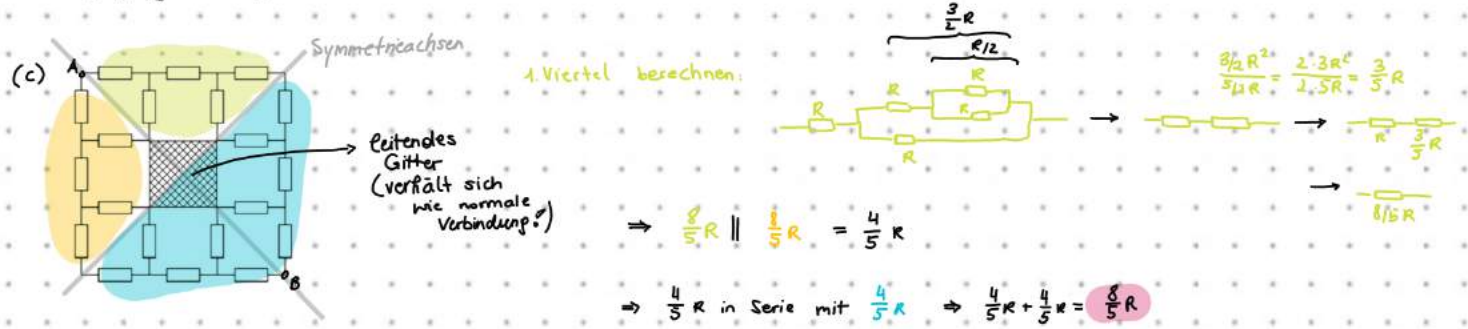 (c)
A
Symmetrieachsen
B
leitendes
Gitter
(verhält sich
wie normale
Verbindung!)
1. Viertel berechnen:
3/2 R
R/2
R
R
R
R
R
→
→
3/2R² / 5/2R = 2·3R² / 2·5R = 3/5 R
R 3/5 R
→
8/5 R
⇒ 8/5 R || 8/5 R = 4/5 R
⇒ 4/5 R in Serie mit 4/5 R ⇒ 4/5 R + 4/5 R = 8/5 R